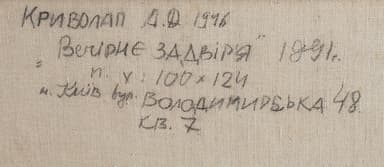 Криволап А.Д 1946
"Вечірнє задвір'я" 1991г.
п. х: 100×124
м. Київ вул. Володимирська 48
кв. 7